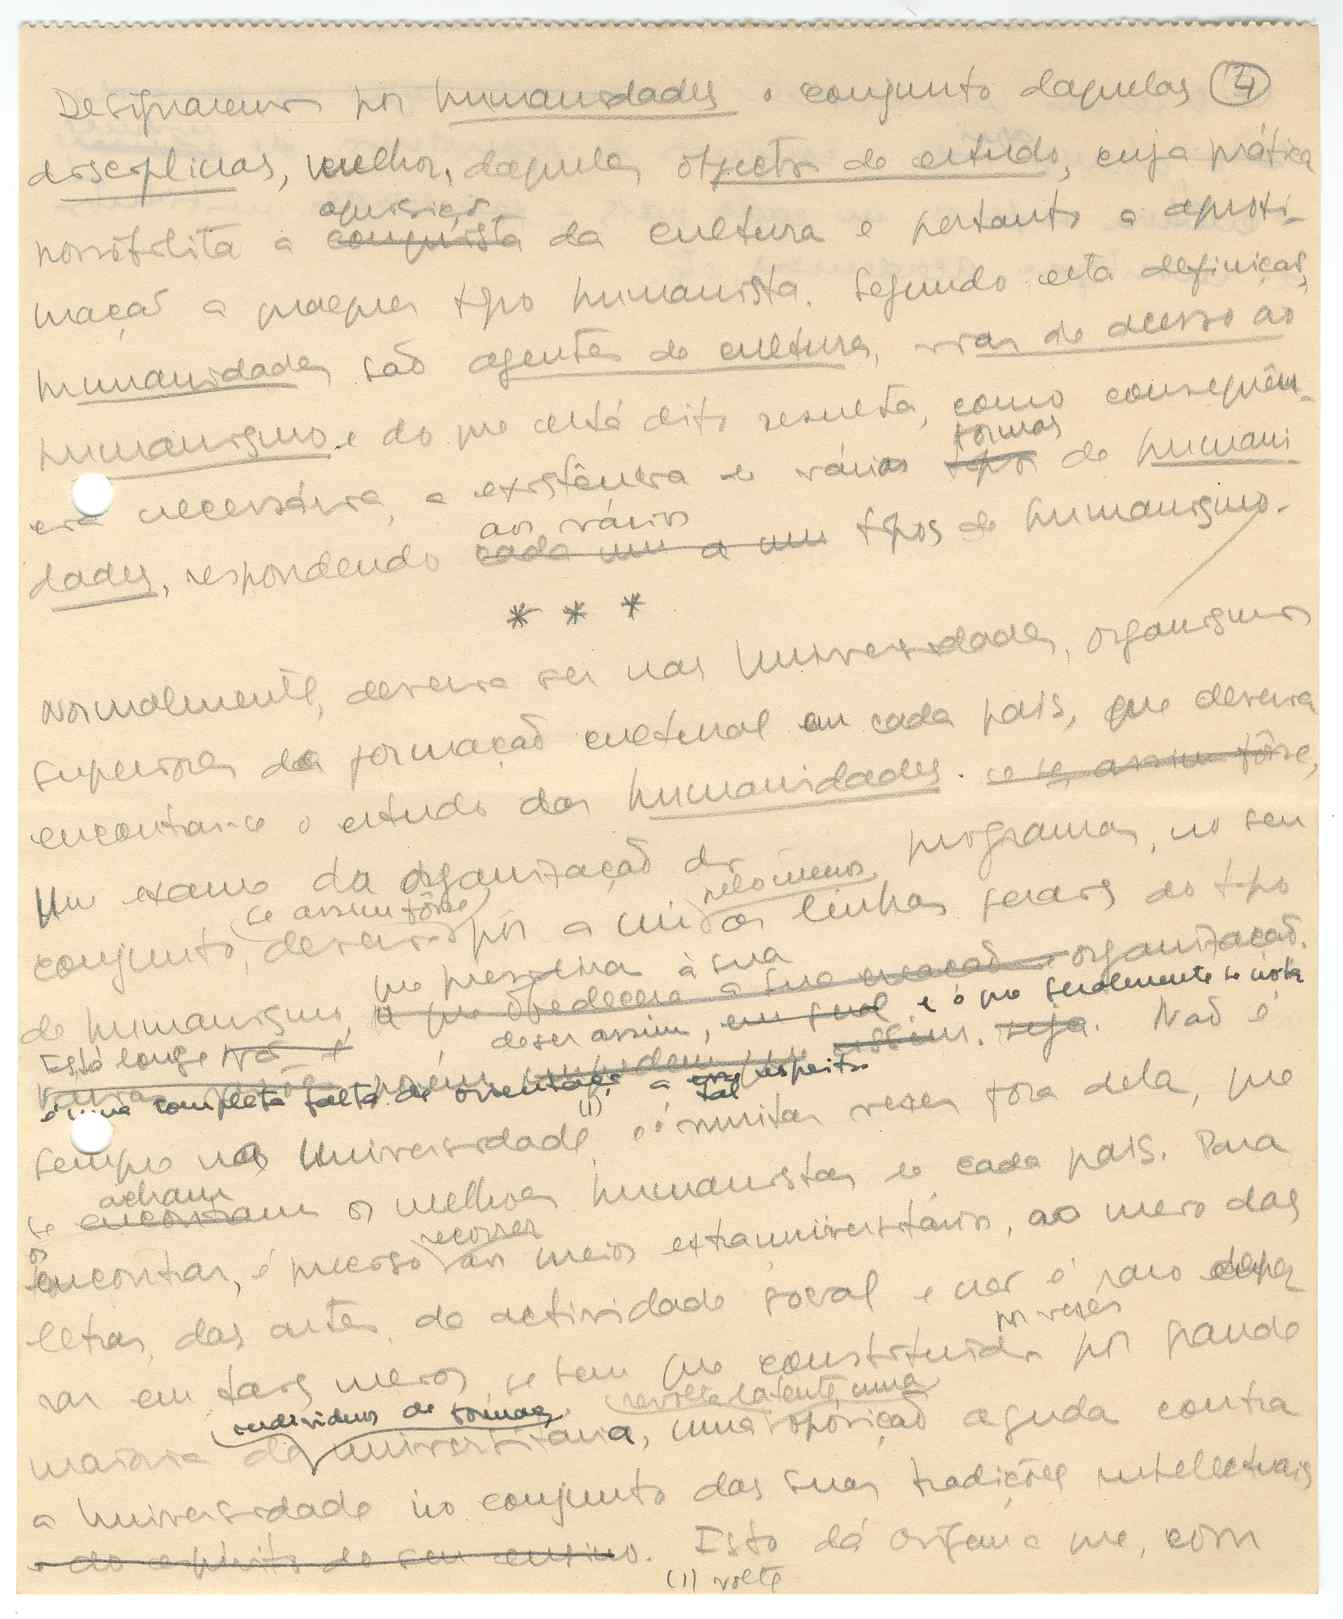 Designaremos por humanidades o conjunto daquelas 4
disciplinas, melhor, daqueles objectos de estudo, cuja prática
aquisição
possibilita a conquista da cultura e portanto a aproxi-
mação a qualquer tipo humanista. Segundo esta definição,
humanidades são agentes de cultura, vias de acesso ao
humanismo e do que está dito resulta, como consequên-
formas
cia necessária, a existência de várias tipos de humani
aos vários
dades, respondendo cada um a um tipos de humanismo.
* * *
Normalmente, deveria ser nas Universidades, organismos
superiores da formação cultural em cada país, que deveria
encontrar-se o estudo das humanidades. se se assim fôsse,
Um exame da organização dos programas, no seu
se assim fôsse pelo menos
conjunto, deveria pôr a nu as linhas gerais do tipo
que presidiu à sua
de humanismo, a que obedecera a sua creação e organização.
Está longe de ser assim, em geral e o que geralmente se nota
porém assim. seja. Não é
é uma completa falta de orientação a esse tal respeito.
(1)
sempre nas Universidade, e é muitas vezes fora dela, que
acham
se encontram os melhores humanistas de cada país. Para
os recorrer
encontrar, é preciso aos meios extrauniversitários, ao meio das
letras, das artes, da actividade social e não é raro depa
por vezes
rar em tais meios, se bem que constituidos por grande
revolta latente, uma
indivíduos de formação
maioria de universitária, uma oposição aguda contra
a Universidade no conjunto das suas tradições intelectuais
e do espírito do seu ensino. Isto dá origem a que, com
(1) volte